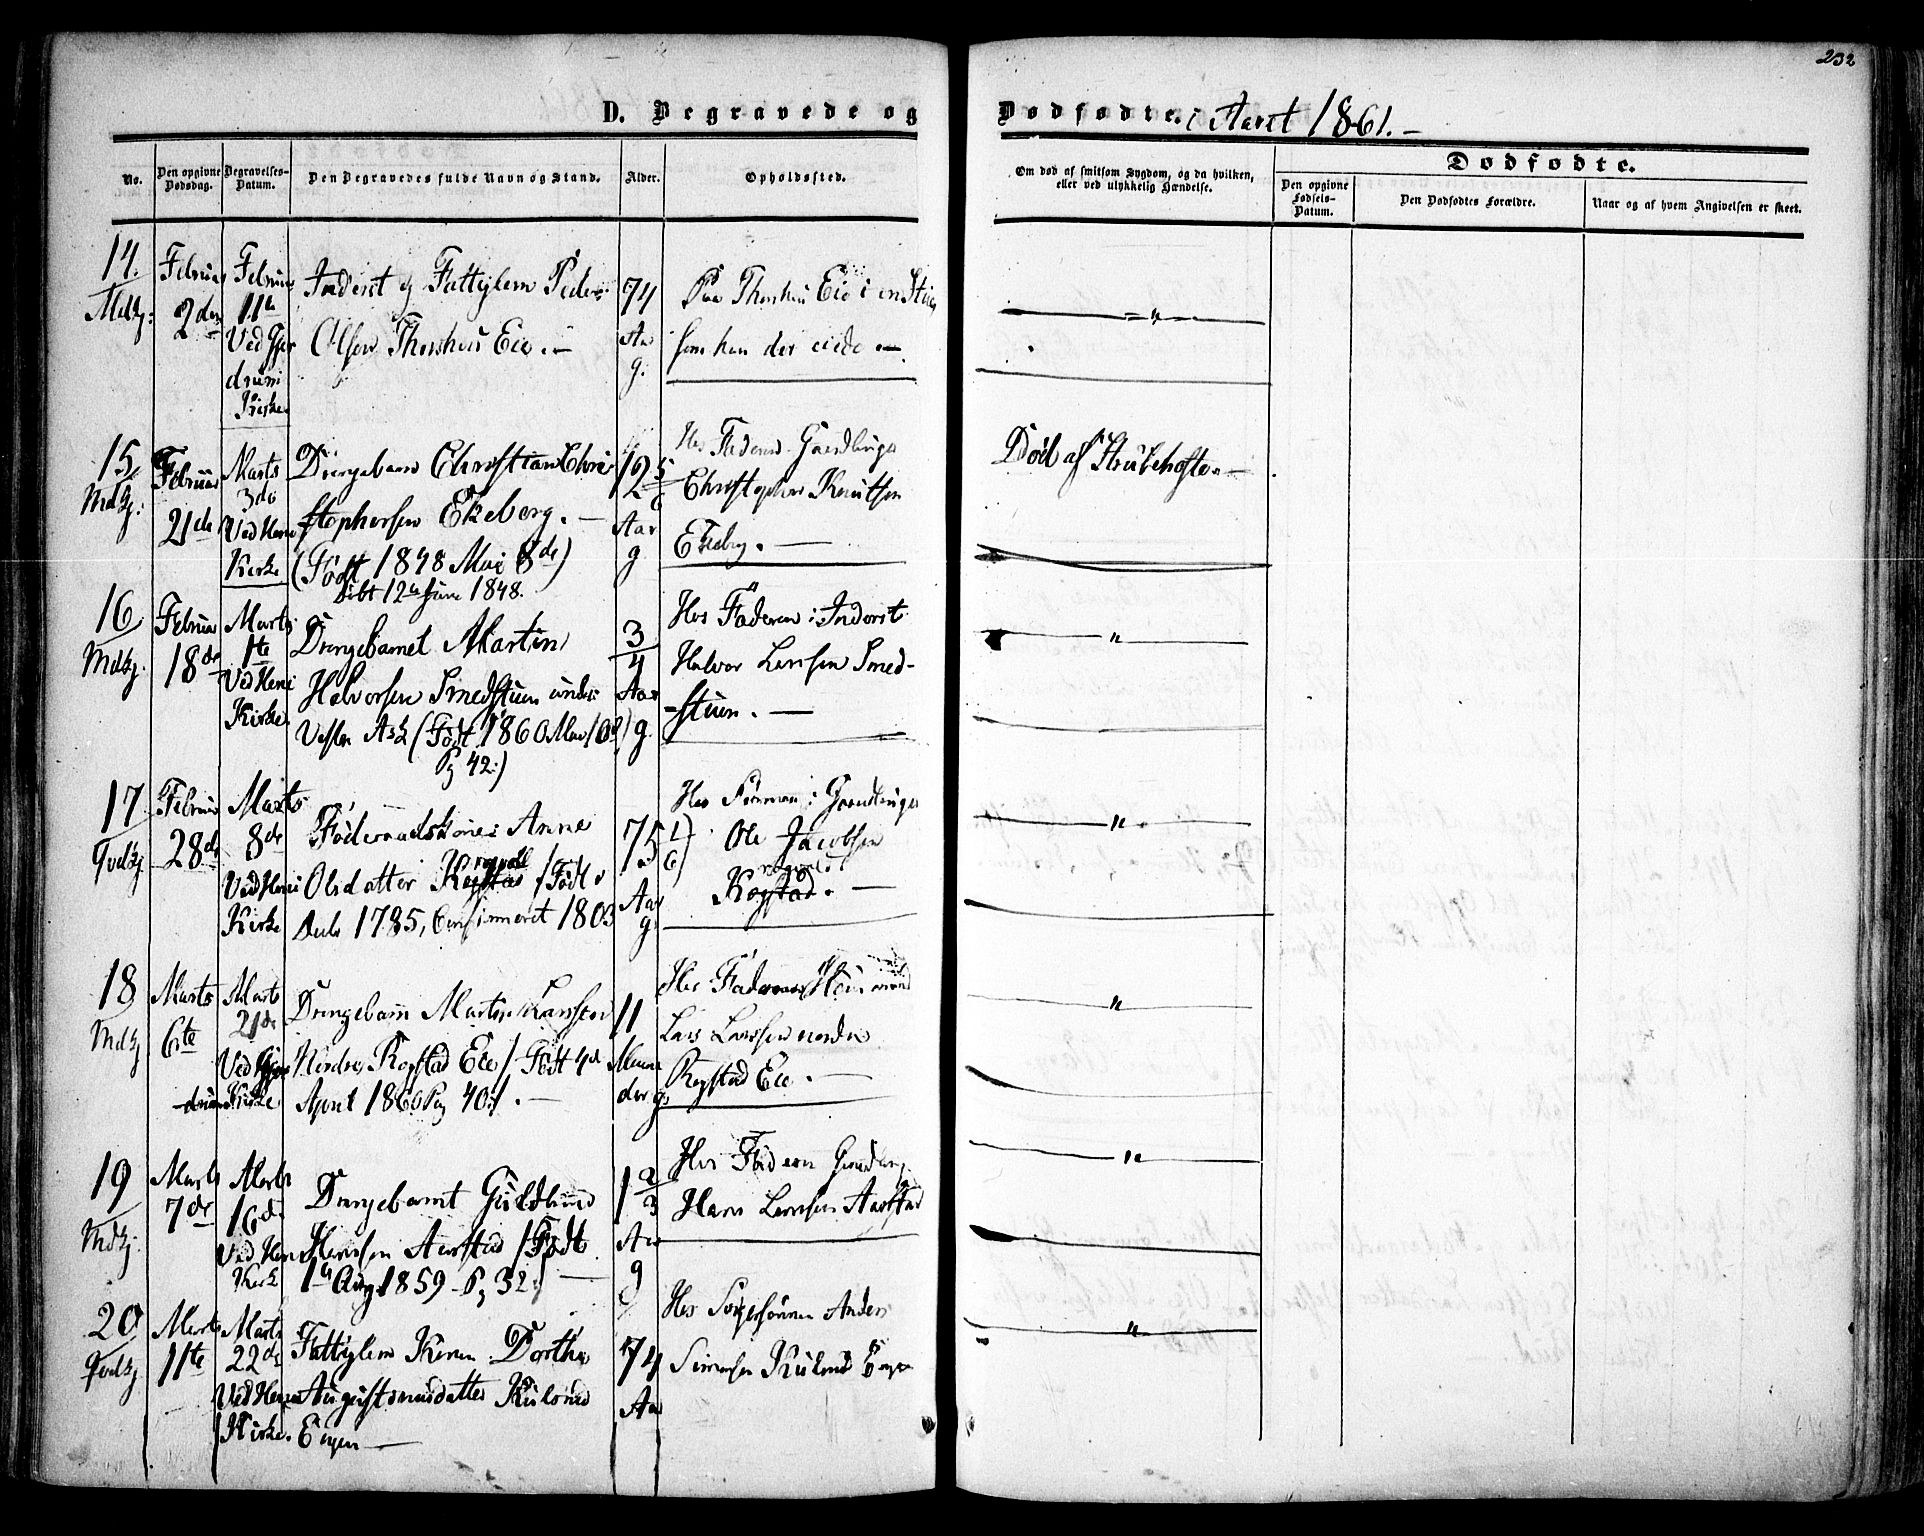 232
D. Begravede og Dødfødte. i Aaret 1861. –
No.
Den opgivne Dødsdag.
Begravelses-Datum.
Den Begravedes fulde Navn og Stand.
Alder.
Opholdssted.
Om død af smitsom Sygdom, og da hvilken, eller ved ulykkelig Hændelse.
Dødfødte.
Den opgivne Fødsels-Datum.
Den Dødfødtes Forældre.
Naar og af hvem Angivelsen er skeet.
14.
Mdkj:
Februar
2den
Februar
11te
Ved Gjer
drum
Kirke
Inderst og Fattiglem Peder
Olsen Eie. –
74
Aar
g.
Paa Eie i en Stue
som han der eiede. –
"
15,
Mdkj:
Februar
21de
Marts
3de
Ved Heni
Kirke
Drengebarn Christian Chri-
stophersen Ekeberg. –
(Født 1848 Mai 8de)
Døbt 12te Juni 1848.
12 5/6
Aar
g
Hos Faderen Gaardbruger
Christopher Knutsen
Ekeberg. –
Død af Strubehoste. –
16
Mdkj.
Februar
18de
Marts
1te
Ved Heni
Kirke
Drengebarnet Martin
Halvorsen Smedstuen under
Vestre Ask (Født 1860 Mai
Pg 42:)
3/4
Aar
g.
Hos Faderen i Inderst
Halvor Larssen Smed-
-stuen. –
"
17
Qvdkj
Februar
28de
Marts
8de
Ved Heni
Kirke
Føderaadskone Anne
Olsdatter Kogstad /Født
1785, Confirmeret 1803
75
Aar
g.
Hos Sønnen i Gaardbruger
Ole Jacobsen
Kogstad. –
"
18
Mdkj
Marts
6te
Marts
21de
Ved Gjer
-drum Kirke
Drengebarn Martin Larssen
Nordre Rogstad Eie /Født 4de
April 1860 Pg 40:/. –
11
Maane
der g.
Hos Faderen Huusmand
Lars Larssen nordre
Rogstad Eie. –
"
19
Mdkj.
Marts
7de
Marts
16de
Ved Heni
Kirk
Drengebarnet Guldbrand
Hanssen Aarstad /Født
1te Aug 1859 Pg 32:/ –
1 2/3
Aar
g
Hos Faderen Gaardbrug.
Hans Larssen Aarstad
"
20
Qvdkj
Marts
11te
Marts
22de
Ved Heni
Kirke.
Fattiglem Karen Dorthe
Augustinusdatter Kulsrud
Engen –
74
Aar
Hos Svigersønnen Anders
Simensen Kulsrud Engen
"